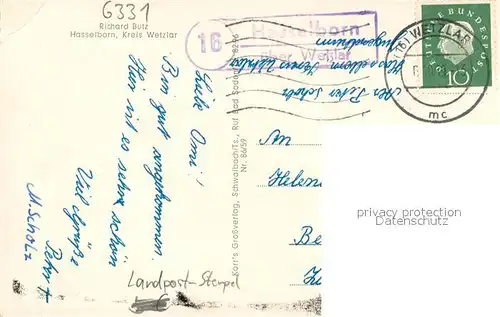 6331
Richard Butz
Hasselborn, Kreis Wetzlar
16
Hasselborn
über Wetzlar
(16) WETZLAR
mc
DEUTSCHE BUNDESPOST
10
Abs. Peter Scholz
Hasselborn Kreis Wetzlar
Jugendheim
Liebe Omi!
Bin gut angekommen.
Hier ist es sehr schön
Viele Grüße
Peter +
M. Scholz
Karr's Großverlag, Schwalbach/Ts., Ruf Bad Soden
Nr. 86/59
An
Helen
Be
Landpost-Stempel
privacy protection
Datenschutz